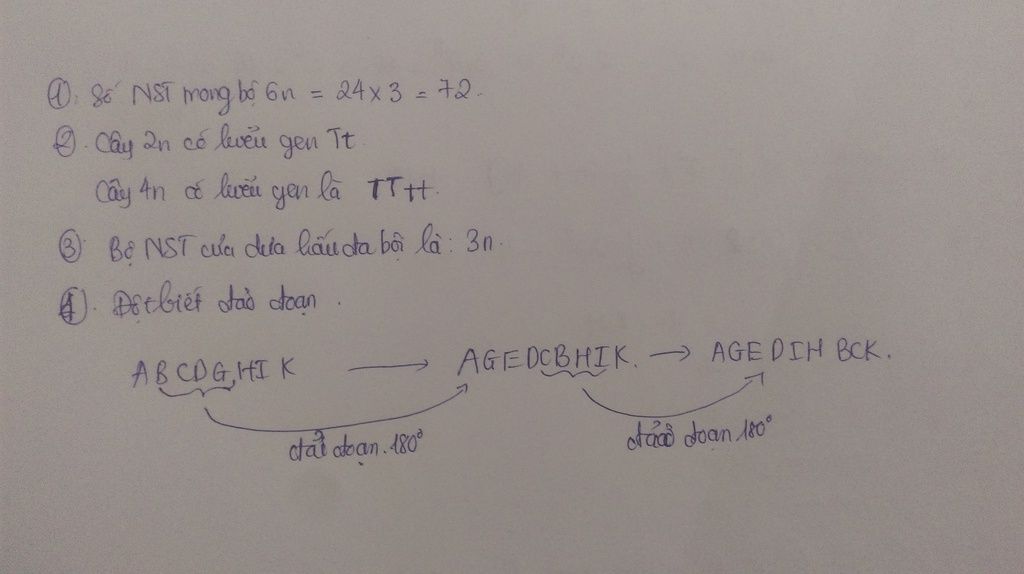 ①. Số NST trong bộ 6n = 24 x 3 = 72.
②. Cây 2n có kiểu gen Tt.
Cây 4n có kiểu gen là TTtt.
③. Bộ NST của dưa hấu đa bội là: 3n.
④. Đột biết đảo đoạn.
ABCDG,HIK → AGEDCBHIK. → AGEDIH BCK.
đảo đoạn.180° đảo đoạn.180°